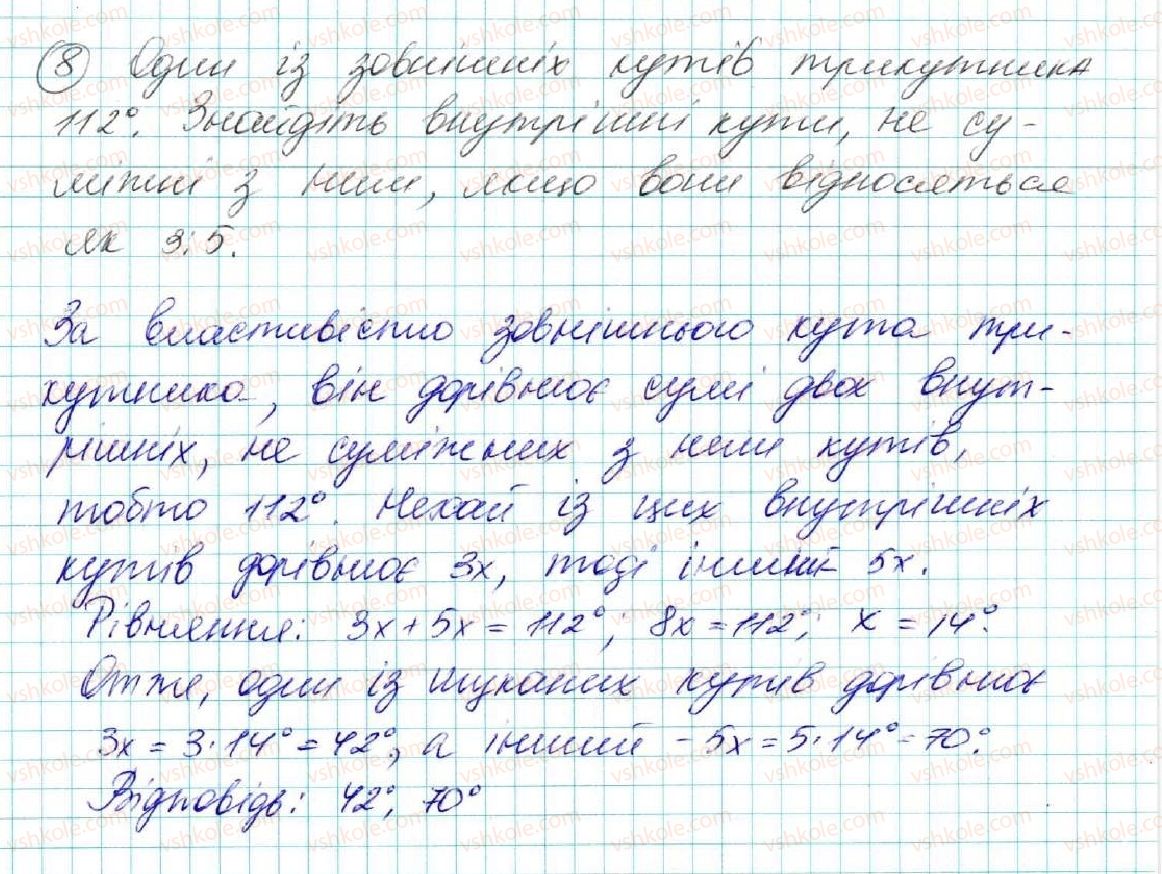 8 Один із зовнішніх кутів трикутника
112°. Знайдіть внутрішні кути, не су-
міжні з ним, якщо вони відносяться
як 3:5.
За властивістю зовнішнього кута три-
кутника, він дорівнює сумі двох внут-
рішніх, не суміжних з ним кутів,
тобто 112°. Нехай із цих внутрішніх
кутів дорівнює 3x, тоді інший 5x.
Рівняння: 3x + 5x = 112°; 8x = 112°; x = 14°.
Отже, один із шуканих кутів дорівнює
3x = 3·14° = 42°, а інший - 5x = 5·14° = 70°.
Відповідь: 42°, 70°